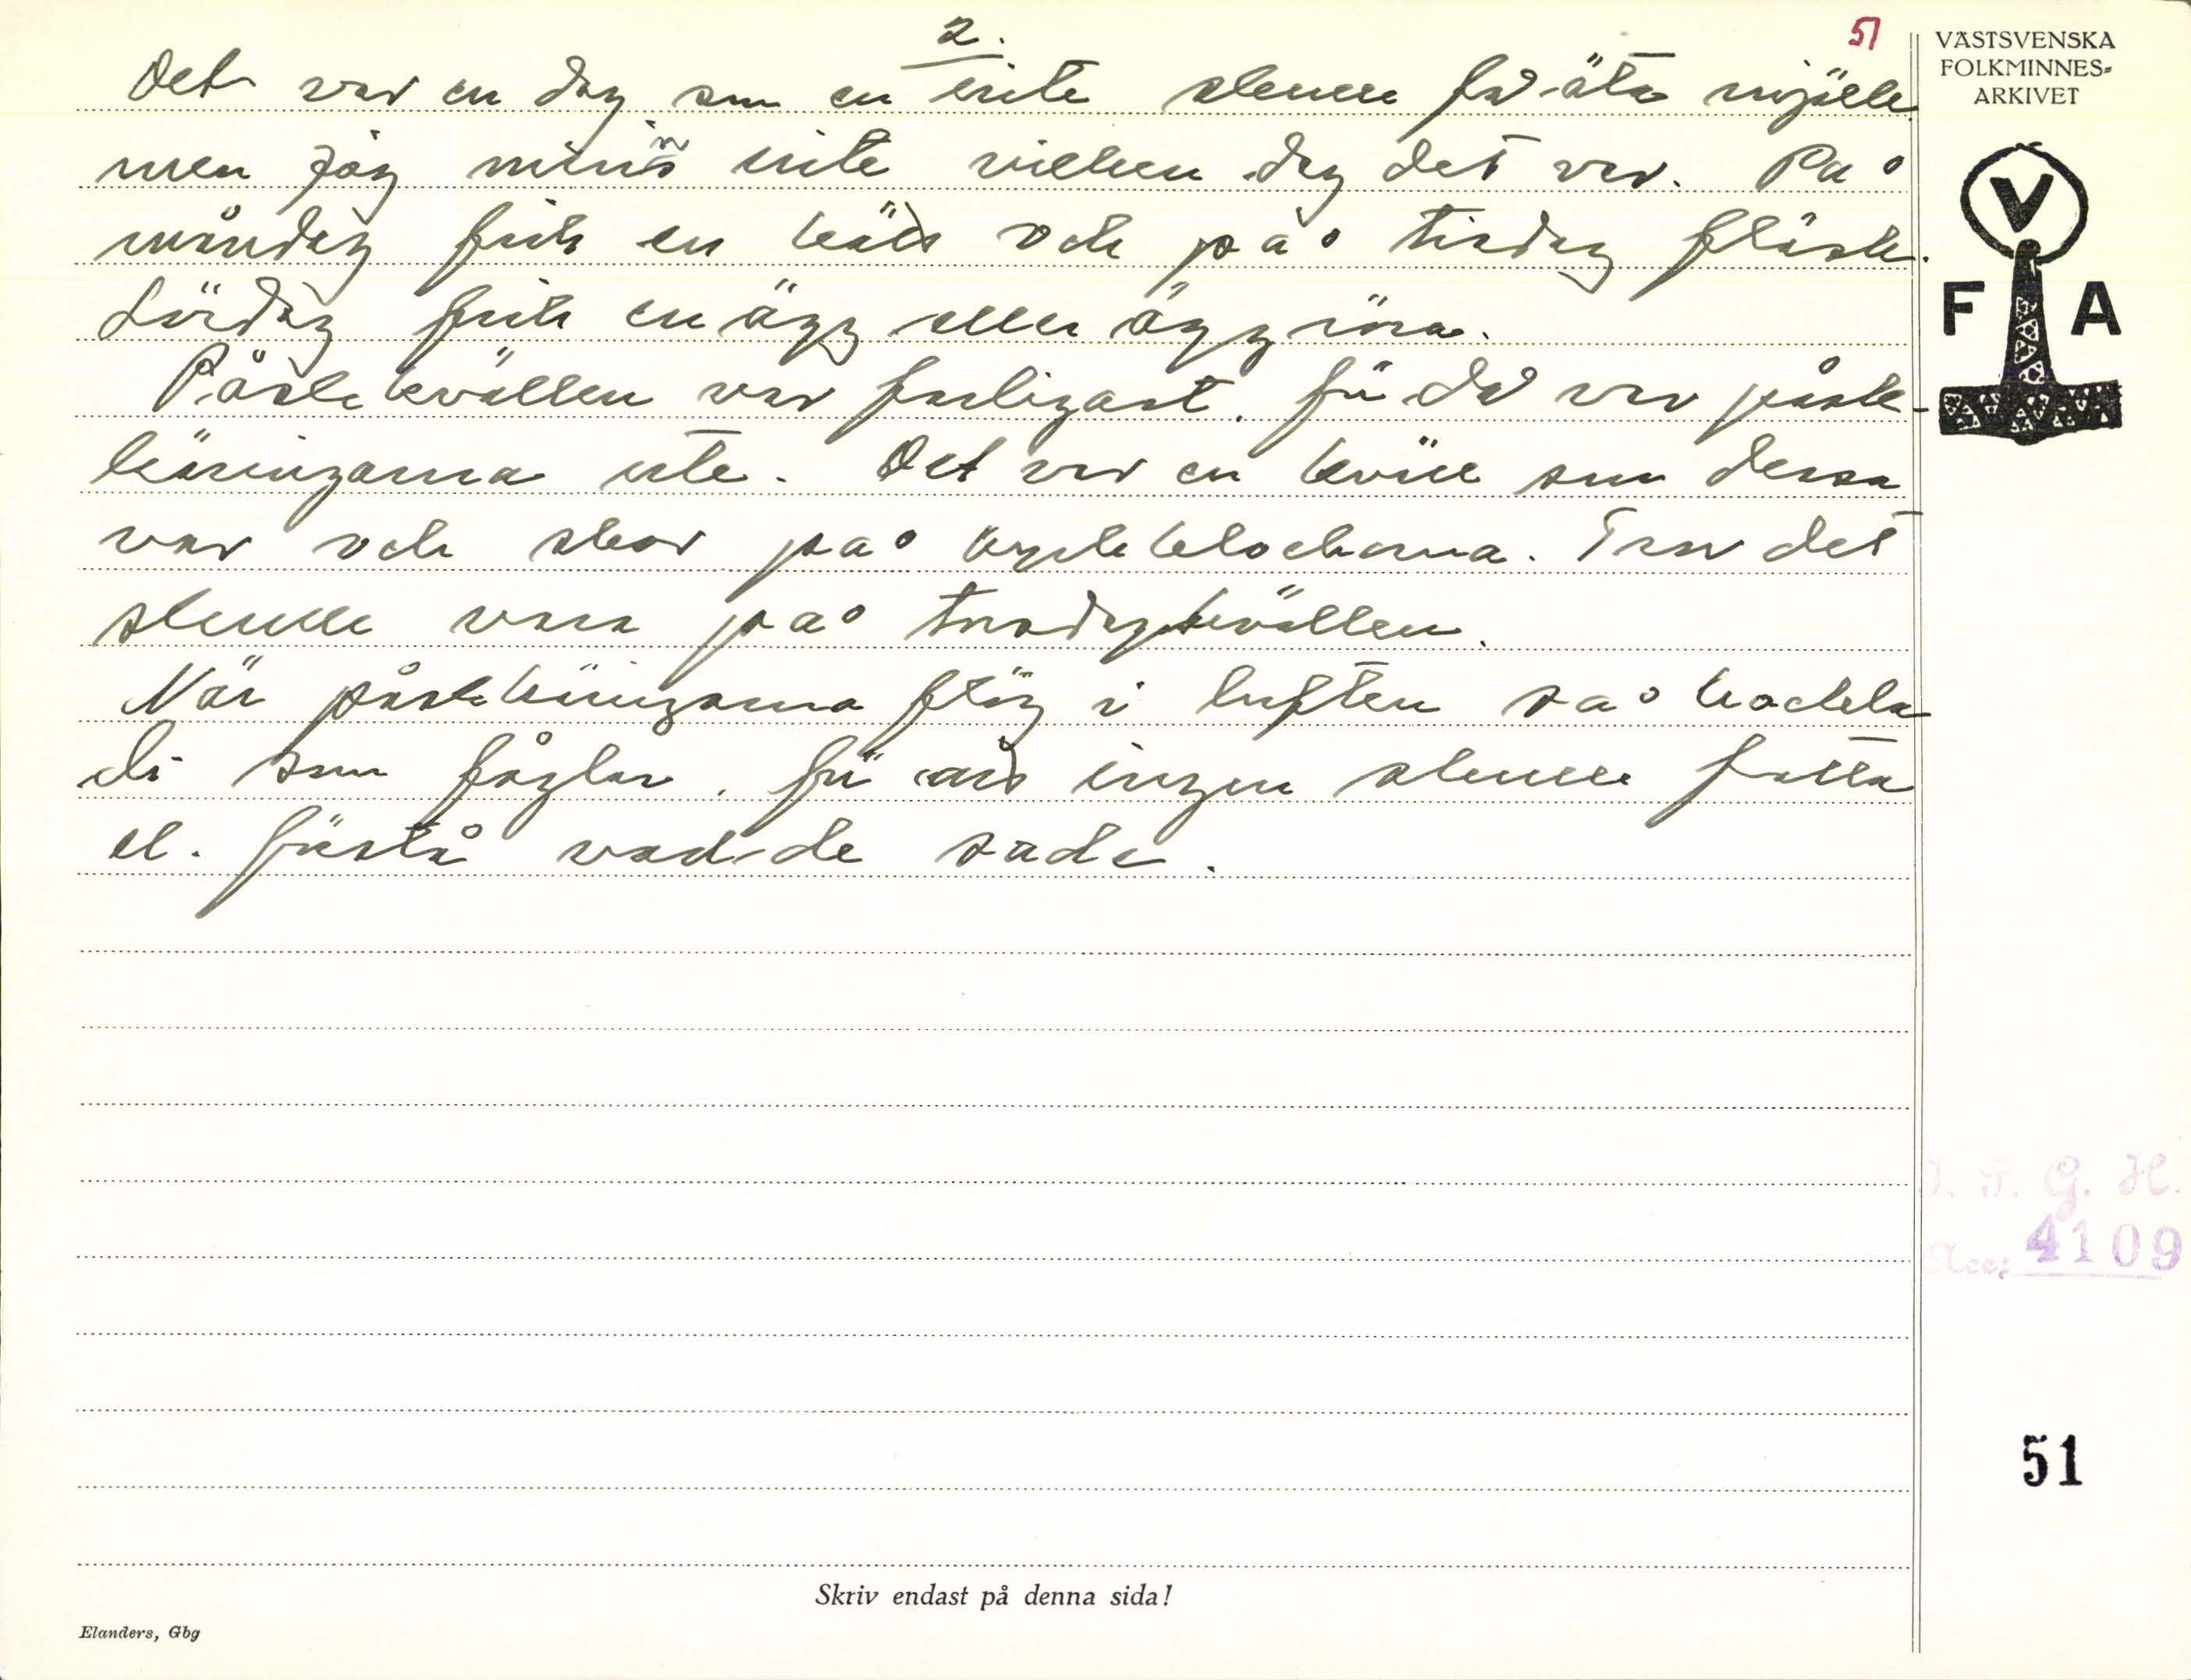 2.
51
Det var en dag som en inte skulle få äta mjölk
men jag minns inte vilken dag det var. På
måndag fick en kött och på tisdag fläsk.
Lördag fick en ägg eller äggröra.
Påskekvällen var farligast, för då var påsk-
käringarna ute. Det var en kväll som dessa
var och skar på kyrkklockorna. Tror det
skulle vara på torsdagskvällen.
När påskkäringarna flög i luften så kackla
di som fåglar, för att ingen skulle fatta
el. förstå vad de sade.
VÄSTSVENSKA
FOLKMINNES-
ARKIVET
V
F A
I. F. G. H.
Acc: 4109
51
Skriv endast på denna sida!
Elanders, Gbg